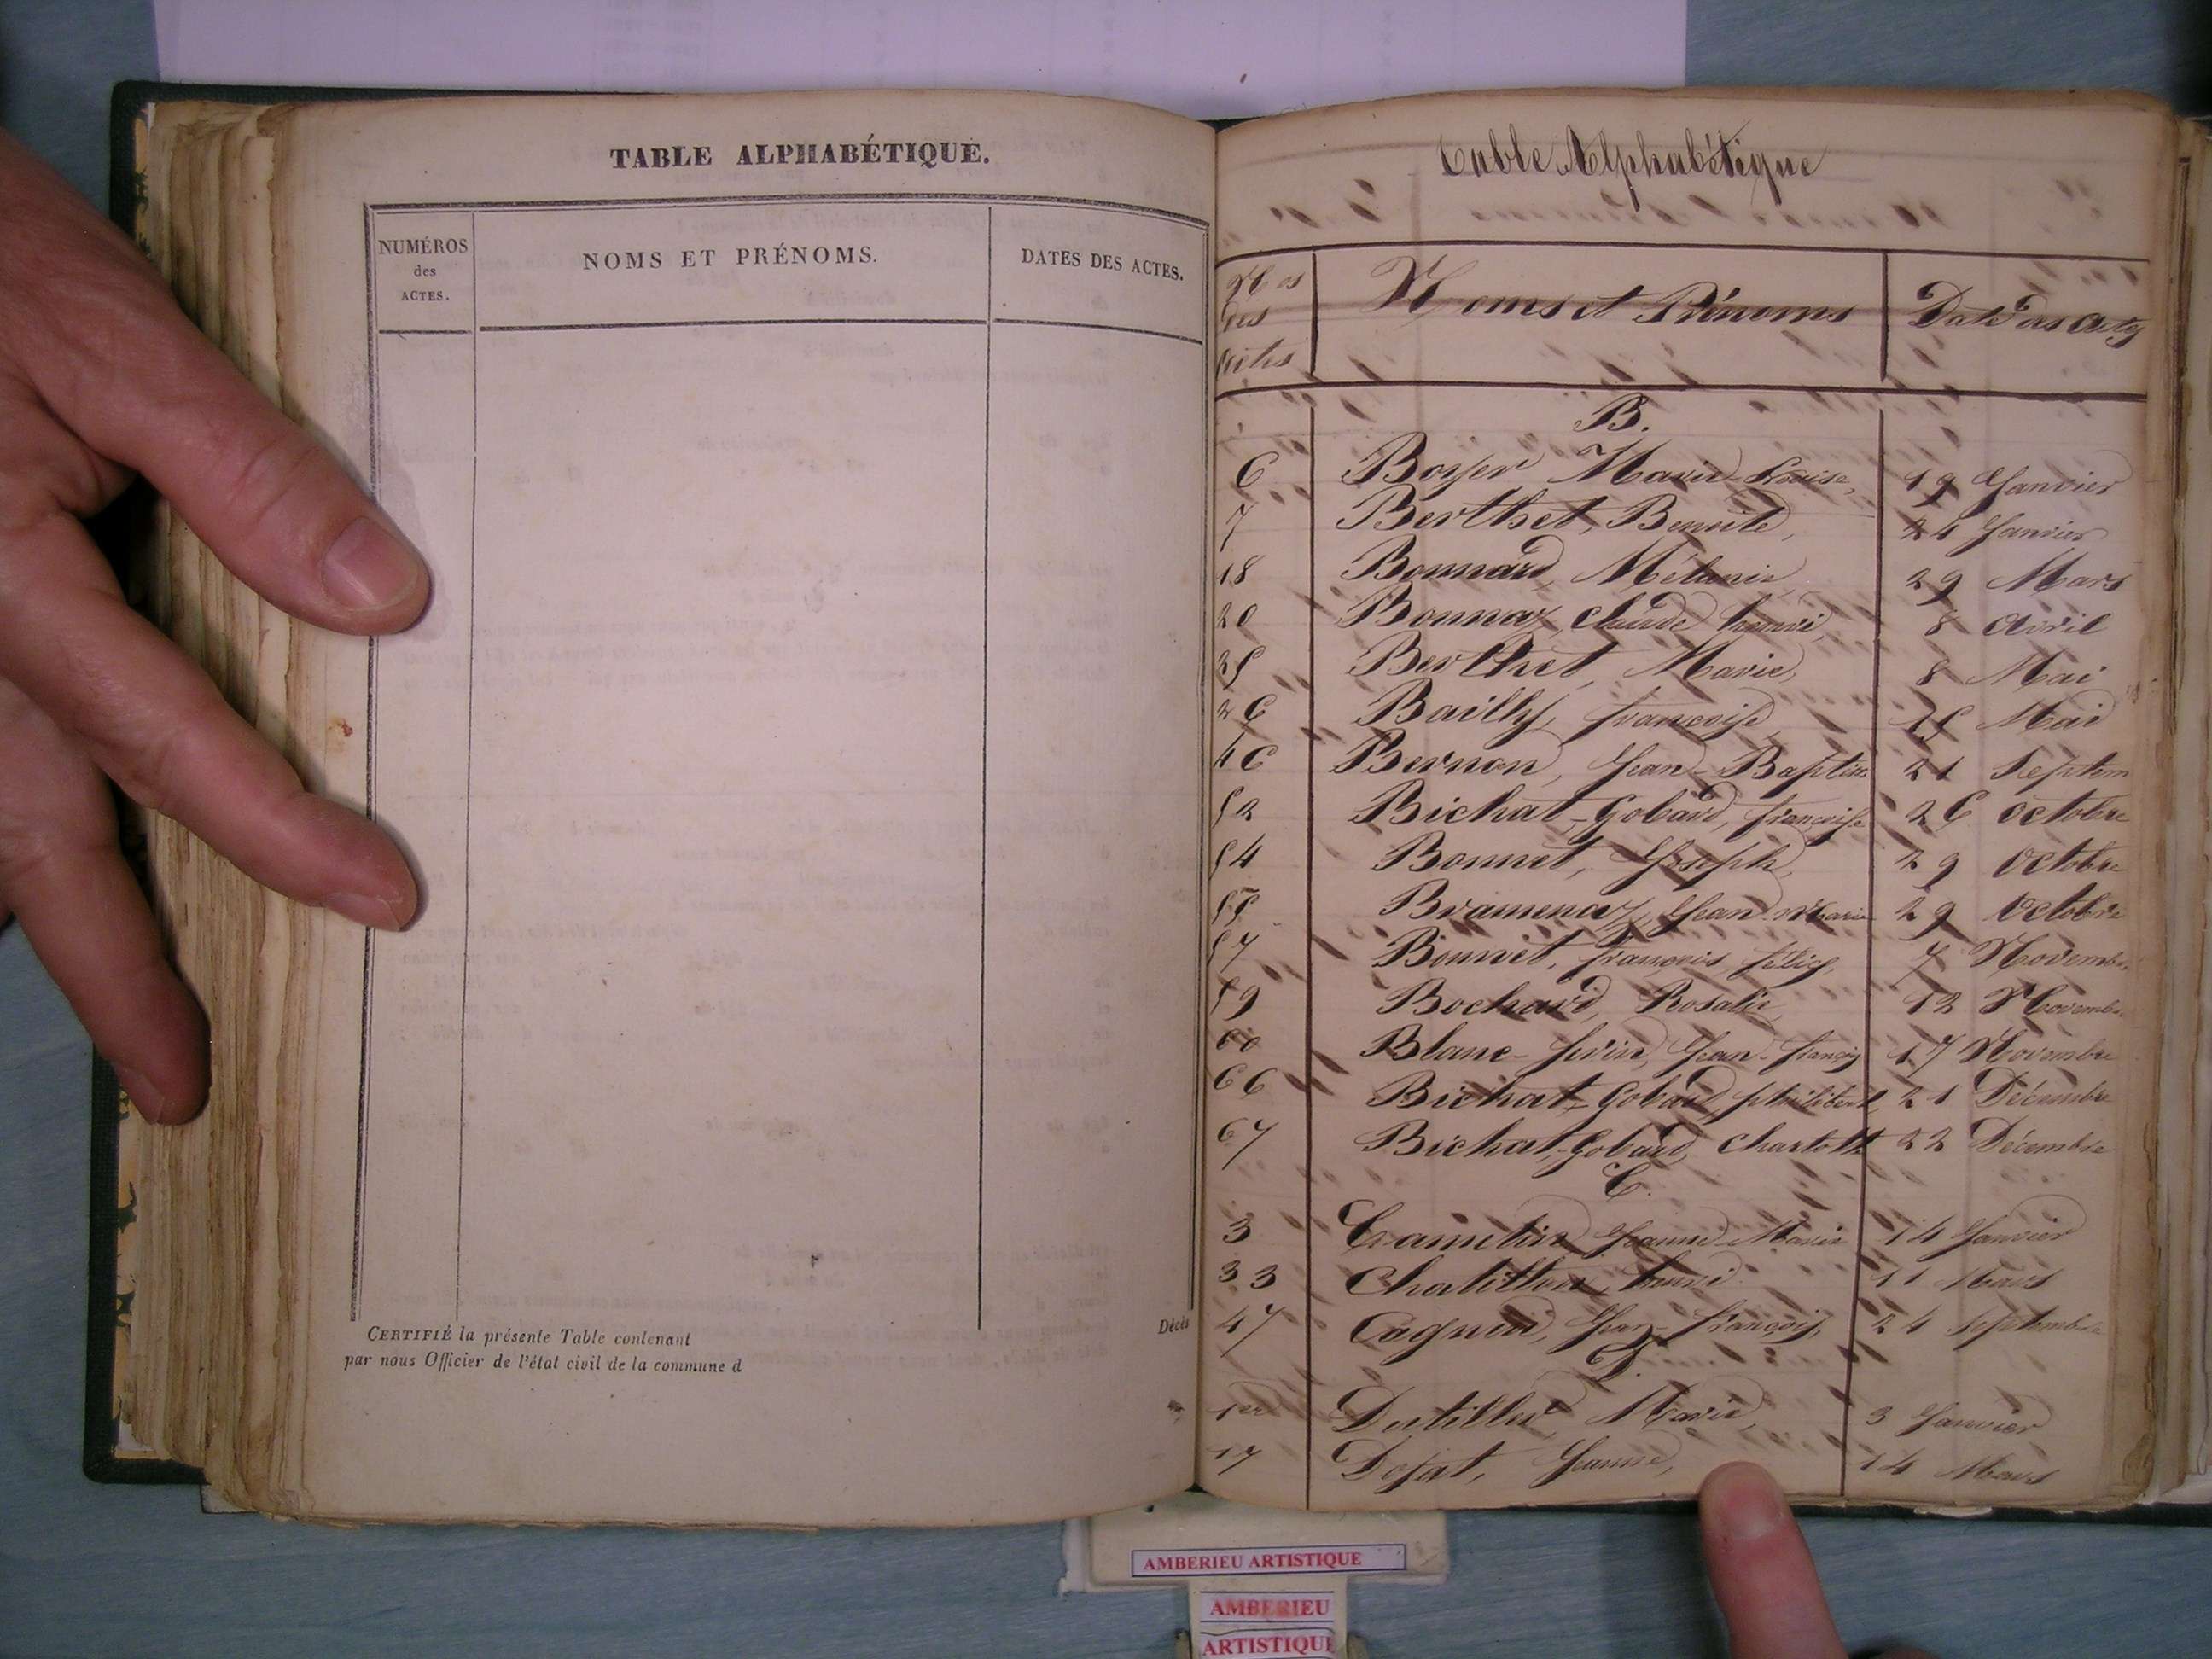 TABLE ALPHABÉTIQUE.
NUMÉROS
des
ACTES.
NOMS ET PRÉNOMS.
DATES DES ACTES.
CERTIFIÉ la présente Table contenant
par nous Officier de l'état civil de la commune d
Décès
Table Alphabétique
Nos
des
actes
Noms et Prénoms
Date des actes
B.
6 Boyer Marie-Louise, 19 Janvier
7 Berthet, Benoite, 24 Janvier
18 Bonnard, Mélanie, 29 Mars
20 Bonnaz, Claude henri, 8 Avril
25 Berthet, Marie, 8 Mai
26 Bailly, françoise, 15 Mai
46 Bernon, Jean-Baptiste 21 Septem
52 Bichat-Gobard, françoise 26 octobre
54 Bonnet, Joseph, 29 octobre
55 Bramenaz, Jean-Marie 29 Octobre
57 Bonnet, françois félix, 7 Novembre
59 Bochard, Rosalie, 12 Novembre
60 Blanc-ferin, Jean-françois 17 Novembre
66 Bichat-Gobard, philibert 21 Décembre
67 Bichat-Gobard, Charlotte 22 Décembre
C.
3 Jeanne-Marie 14 Janvier
33 Chatillon, henri 11 Mars
47 Jean-françois, 24 Septembre
D.
1er Dutillet, Marie, 3 Janvier
17 Jeanne, 14 Mars
AMBERIEU ARTISTIQUE
AMBERIEU
ARTISTIQUE